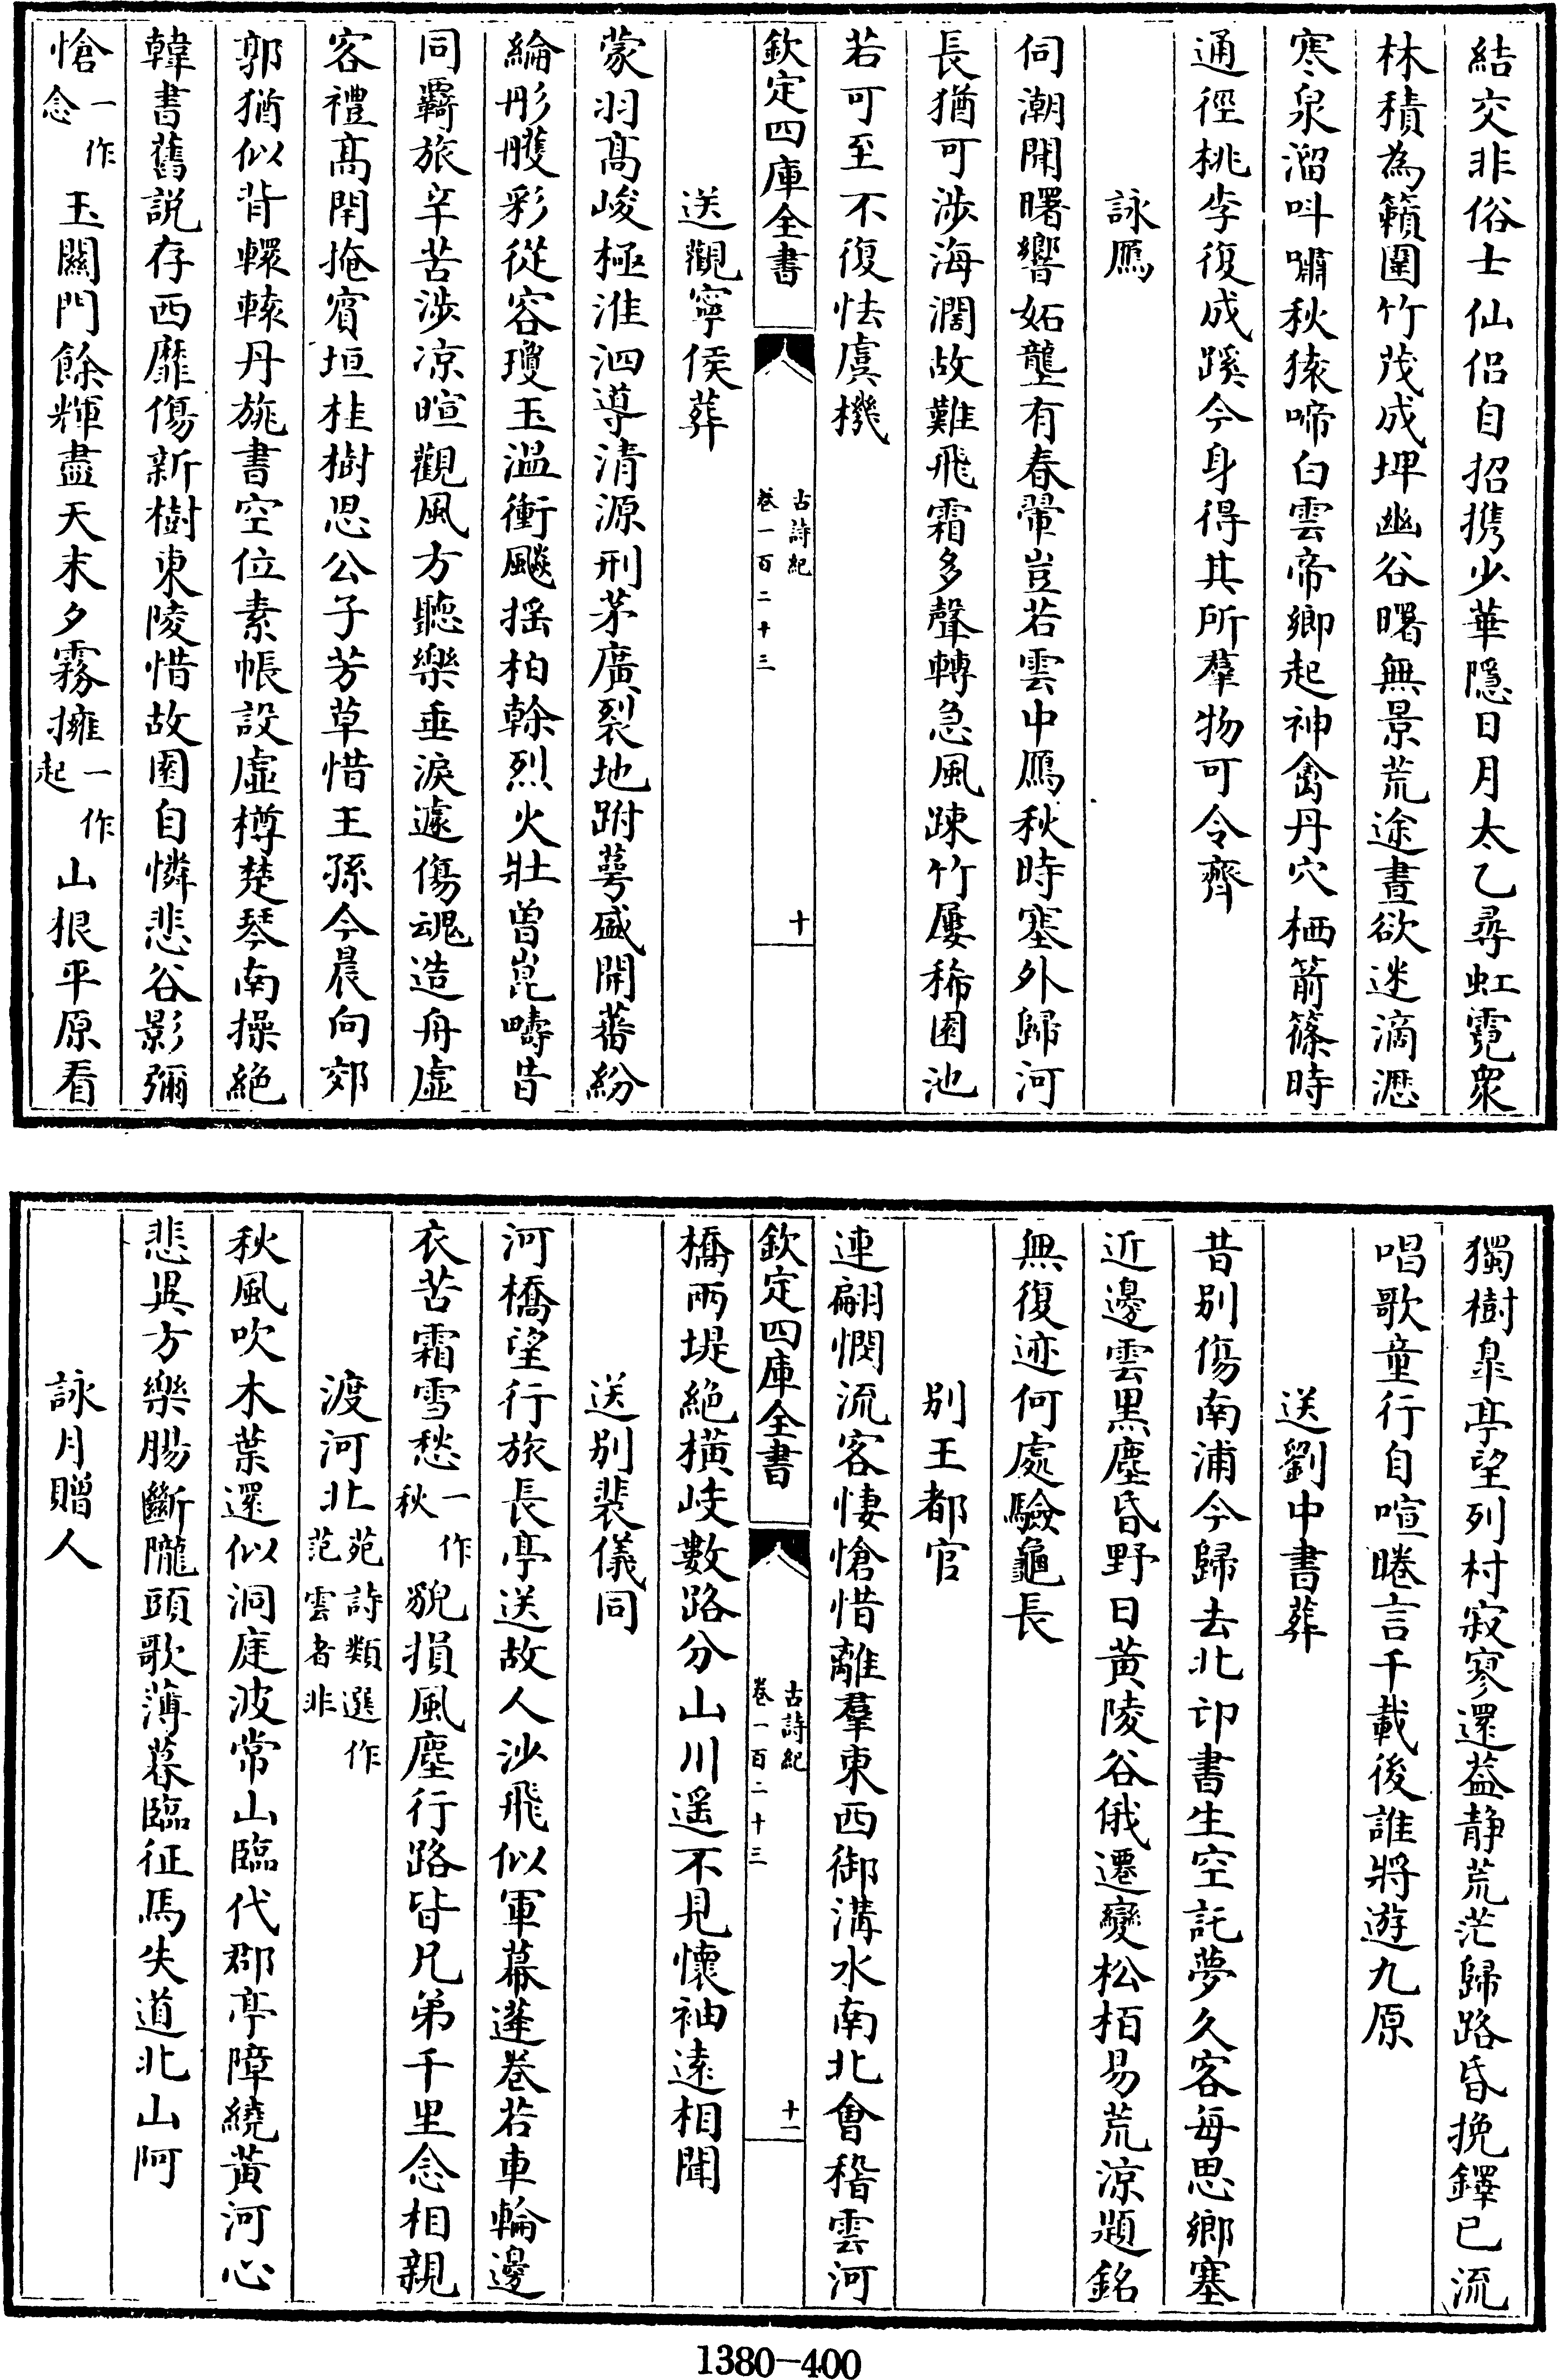 結交非俗士仙侶自招携少華隱日月太乙尋虹霓衆
林積為籟圍竹茂成埤幽谷曙無景荒途晝欲迷滴瀝
寒泉溜呌嘯秋猿啼白雲帝鄉起神禽丹穴栖箭篠時
通徑桃李復成蹊今身得其所羣物可令齊
詠鴈
伺潮聞曙響妬壟有春翬豈若雲中鴈秋時塞外歸河
長猶可涉海濶故難飛霜多聲轉急風踈竹屢稀園池
若可至不復怯虞機
欽定四庫全書
古詩紀
卷一百二十三
十
送觀寧侯葬
蒙羽髙峻極淮泗導清源刑茅廣裂地跗萼盛開蕃紛
綸彤雘彩從容瓊玉溫衝飈揺柏榦烈火壯曽崑疇昔
同羇旅辛苦涉凉暄觀風方聽樂垂淚遽傷魂造舟虛
客禮髙閈掩賓垣桂樹思公子芳草惜王孫今晨向郊
郭猶似背轘轅丹旐書空位素帳設虛樽楚琴南操絶
韓書舊說存西靡傷新樹東陵惜故園自憐悲谷影彌
愴一作念玉關門餘輝盡天末夕霧擁一作起山根平原看
獨樹臯亭望列村寂寥還葢静荒茫歸路昏挽鐸已流
唱歌童行自喧睠言千載後誰將遊九原
送劉中書葬
昔别傷南浦今歸去北邙書生空託夢久客每思鄉塞
近邊雲黑塵昏野日黄陵谷俄遷變松栢易荒凉題銘
無復迹何處驗龜長
别王都官
連翩憫流客悽愴惜離羣東西御溝水南北會稽雲河
欽定四庫全書
古詩紀
卷一百二十三
十一
橋兩堤絶橫岐數路分山川遥不見懷袖遠相聞
送别裴儀同
河橋望行旅長亭送故人沙飛似軍幕蓬卷若車輪邊
衣苦霜雪愁一作秋貌損風塵行路皆兄弟千里念相親
渡河北苑詩類選作范雲者非
秋風吹木葉還似洞庭波常山臨代郡亭障繞黃河心
悲異方樂腸斷隴頭歌薄暮臨征馬失道北山阿
詠月贈人
1380-400